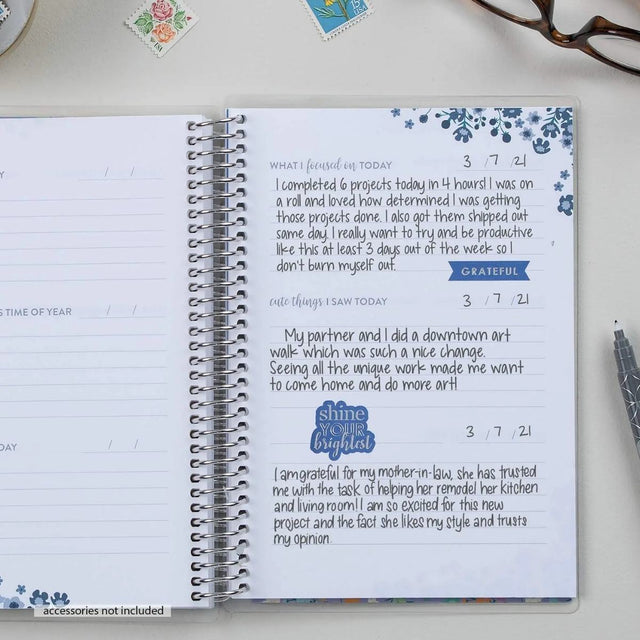 Y / /
S TIME OF YEAR / /
DAY / /
WHAT I focused on TODAY 3 / 7 / 21
I completed 6 projects today in 4 hours! I was on
a roll and loved how determined I was getting
those projects done. I also got them shipped out
same day. I really want to try and be productive
like this at least 3 days out of the week so I
don't burn myself out.
GRATEFUL
cute things I SAW TODAY 3 / 7 / 21
My partner and I did a downtown art
walk which was such a nice change.
Seeing all the unique work made me want
to come home and do more art!
shine
YOUR
brightest
3 / 7 / 21
I am grateful for my mother-in-law, she has trusted
me with the task of helping her remodel her kitchen
and living room! I am so excited for this new
project and the fact she likes my style and trusts
my opinion.
accessories not included